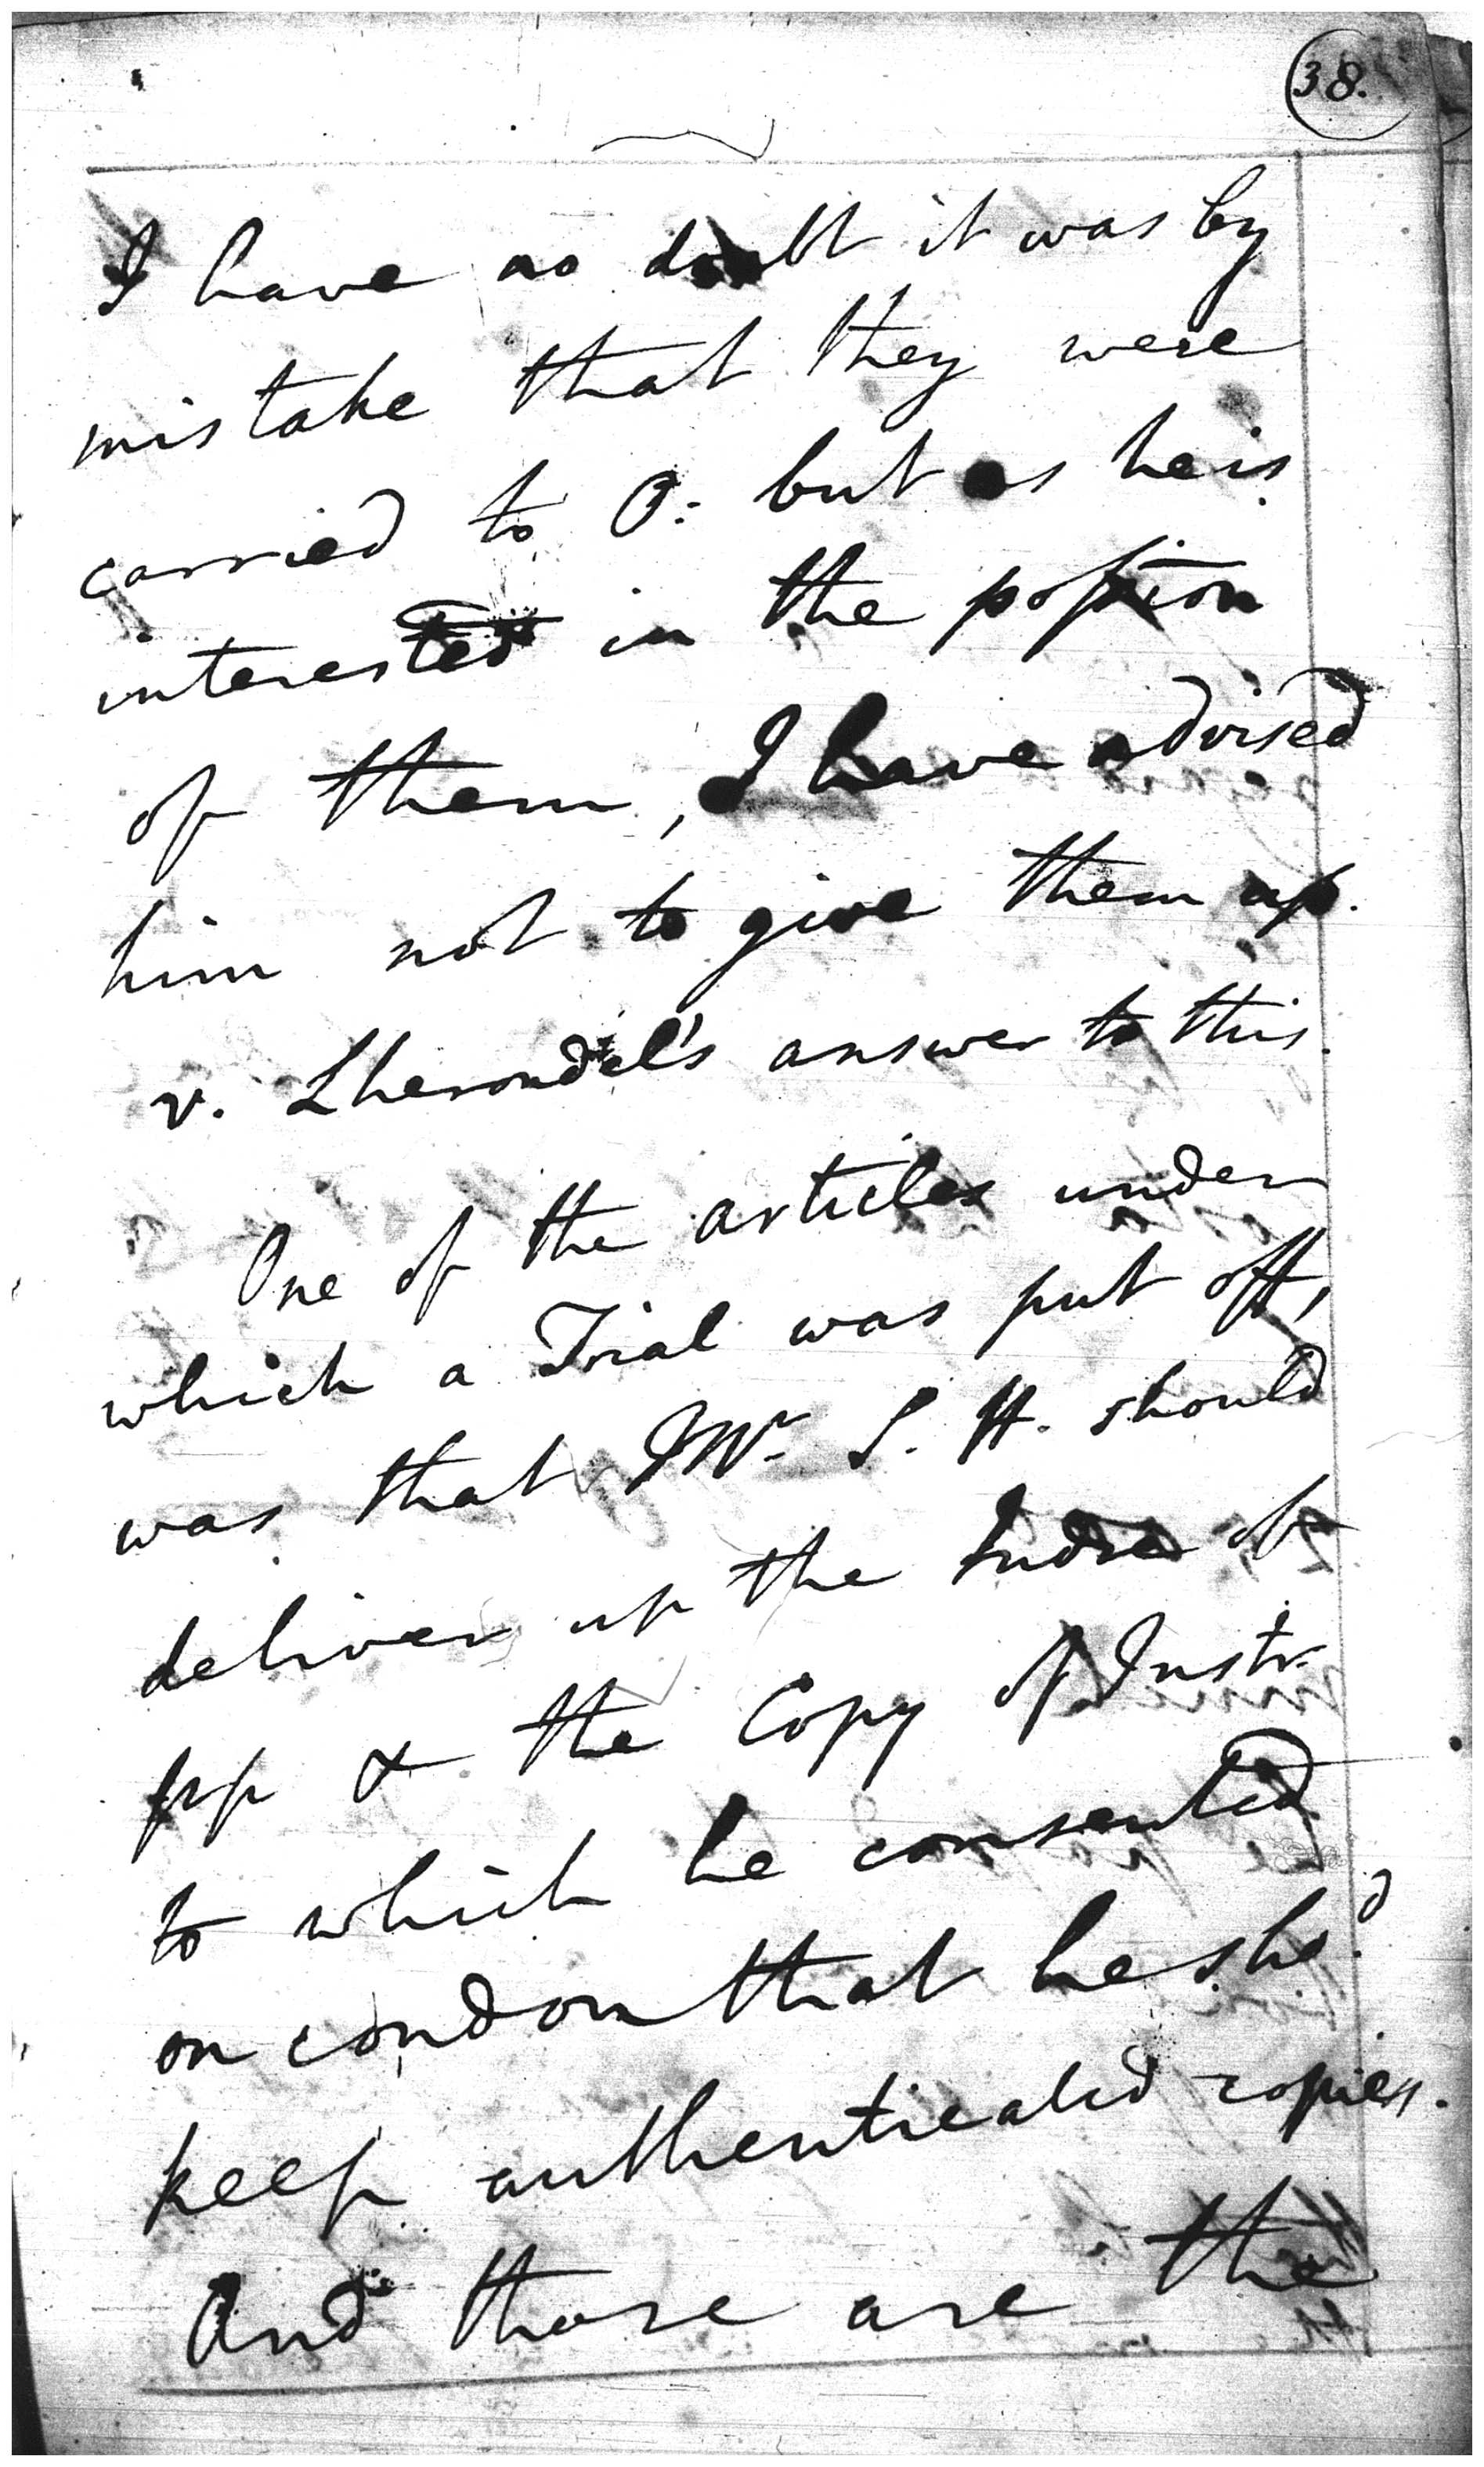 38.
I have no doubt it was by
mistake that they were
carried to O: but as he is
interested in the possion
of them, I have advised
him not to give them up.
v. Lherondel's answer to this.
One of the articles under
which a Trial was put off,
was that Mr. S. H. should
deliver up the Indre of
pp & the Copy of Instr.
to which he consented
on condon that he sho.d
keep authenticated copies.
And those are the